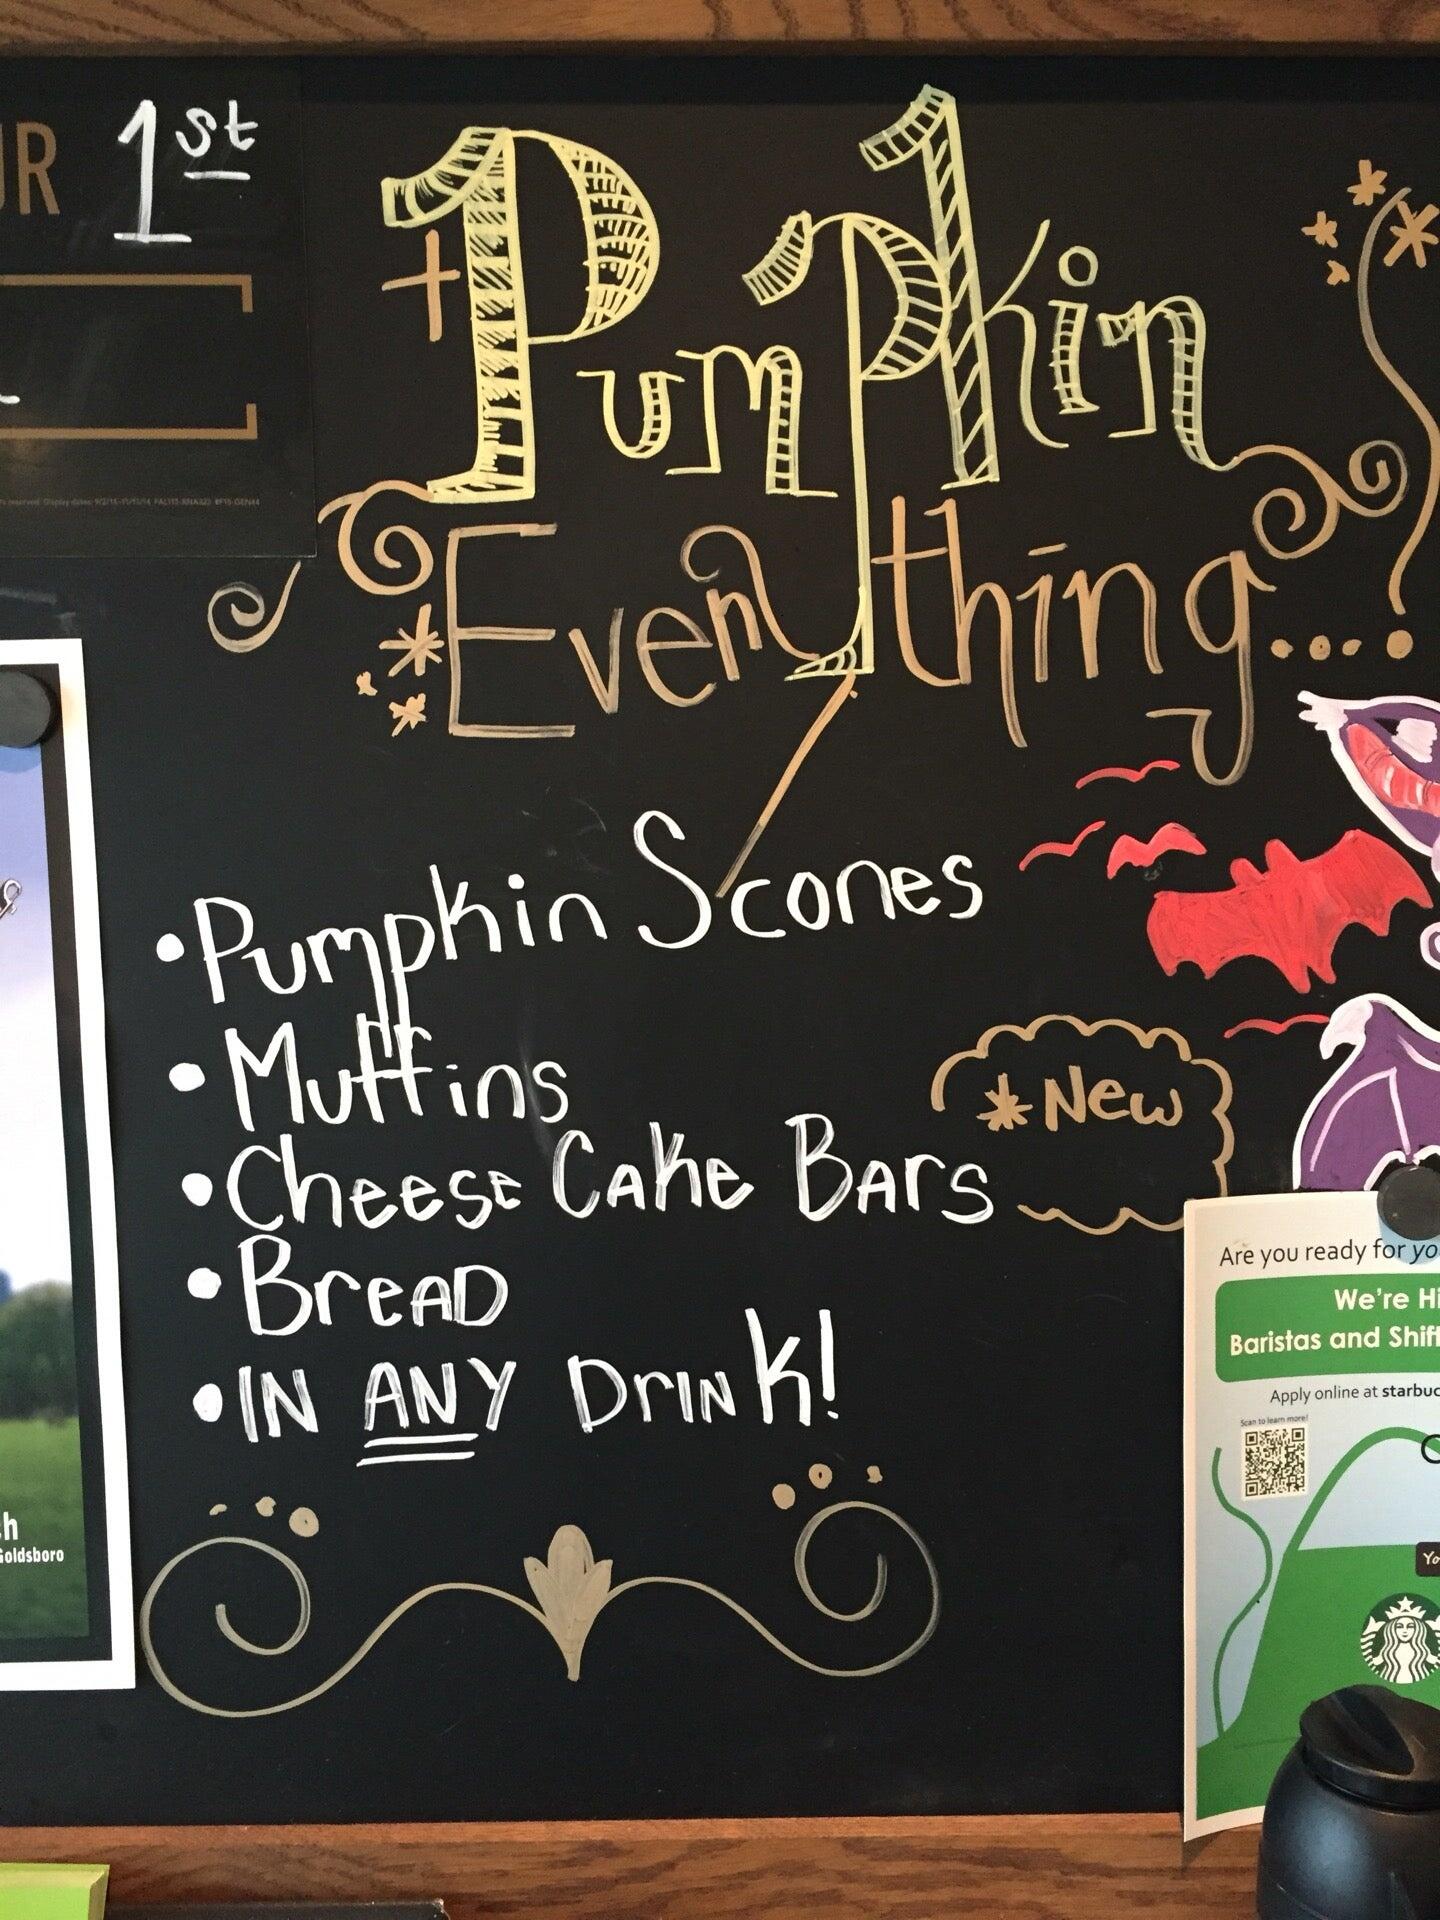 UR 1st
Pumpkin
Everything....
• Pumpkin Scones
• Muffins
• Cheese Cake Bars
*New
• Bread
• IN ANY Drink!
Are you ready for yo
We're Hi
Baristas and Shift
Apply online at starbuc
Scan to learn more!
Yo
ch
Goldsboro